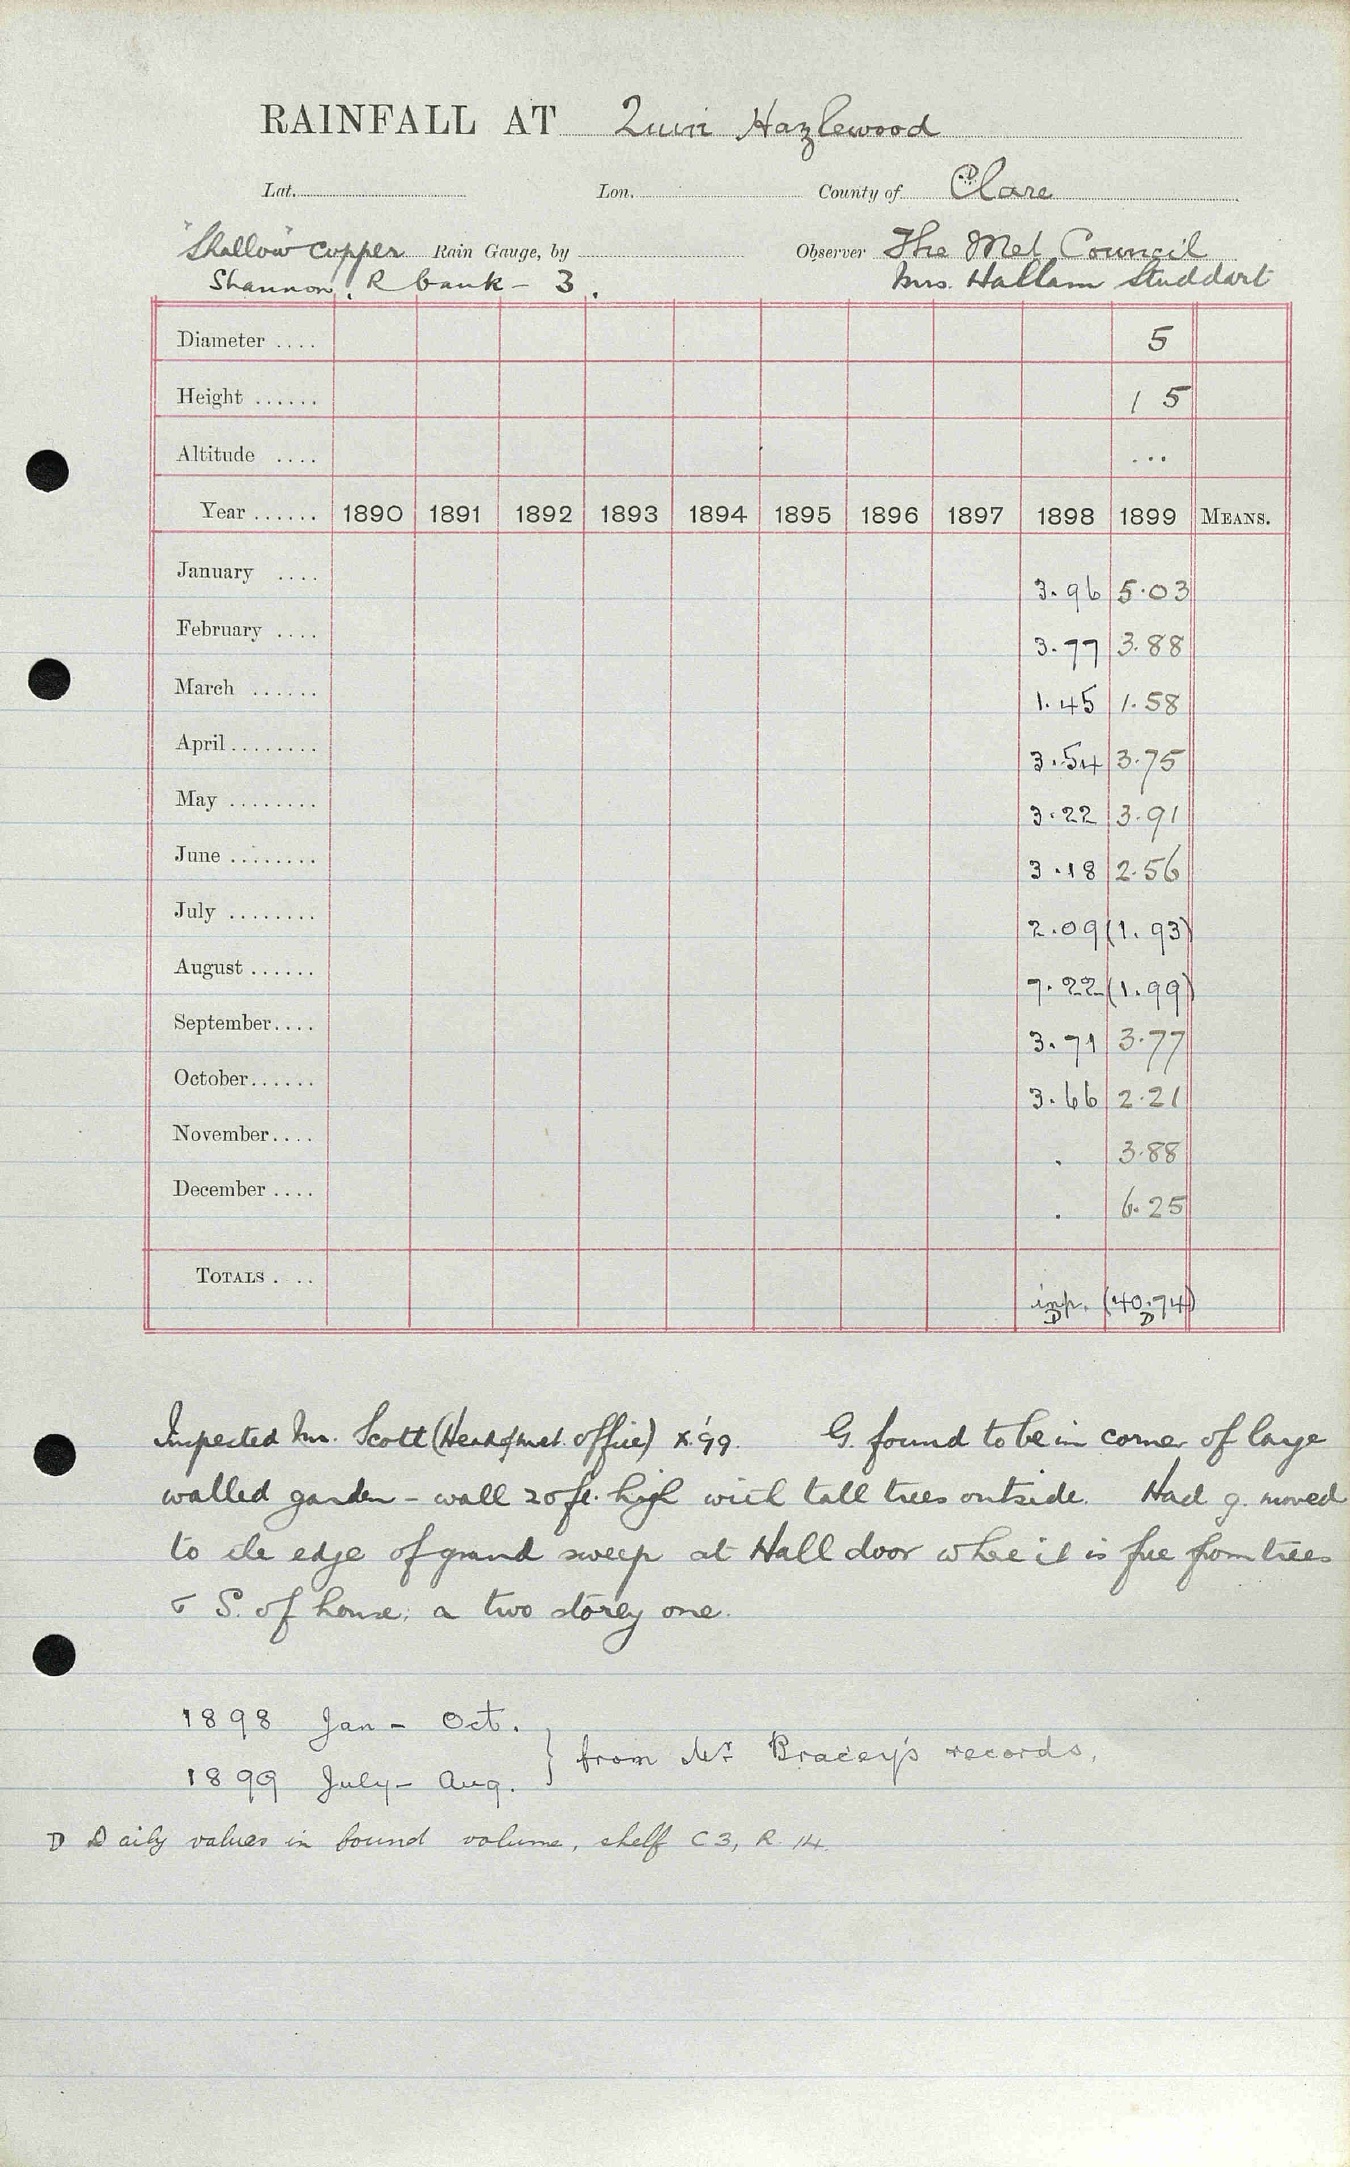 RAINFALL AT Quin Hazlewood
Lat. Lon. County of Clare
"Shallow" copper Rain Gauge, by Observer The Met Council
Shannon, R bank - 3. Mrs. Hallam Studdart
Diameter .... 5
Height ...... 1 5
Altitude .... ...
Year ...... 1890 1891 1892 1893 1894 1895 1896 1897 1898 1899 MEANS.
January .... 3.96 5.03
February .... 3.77 3.88
March ...... 1.45 1.58
April ........ 3.54 3.75
May ........ 3.22 3.91
June ........ 3.18 2.56
July ........ 2.09 (1.93)
August ...... 7.22 (1.99)
September.... 3.71 3.77
October...... 3.66 2.21
November.... . 3.88
December .... . 6.25
TOTALS . .. inp. (40.74)
D D
Inspected Mr. Scott (Head of met. office) X.'99. G. found to be in corner of large
walled garden - wall 20 ft. high with tall trees outside. Had g. moved
to the edge of grand sweep at Hall door where it is free from trees
& S. of house; a two storey one.
1898 Jan - Oct.
} from Mr Bracey's records.
1899 July - Aug.
D Daily values in bound volume, shelf C3, R 14.